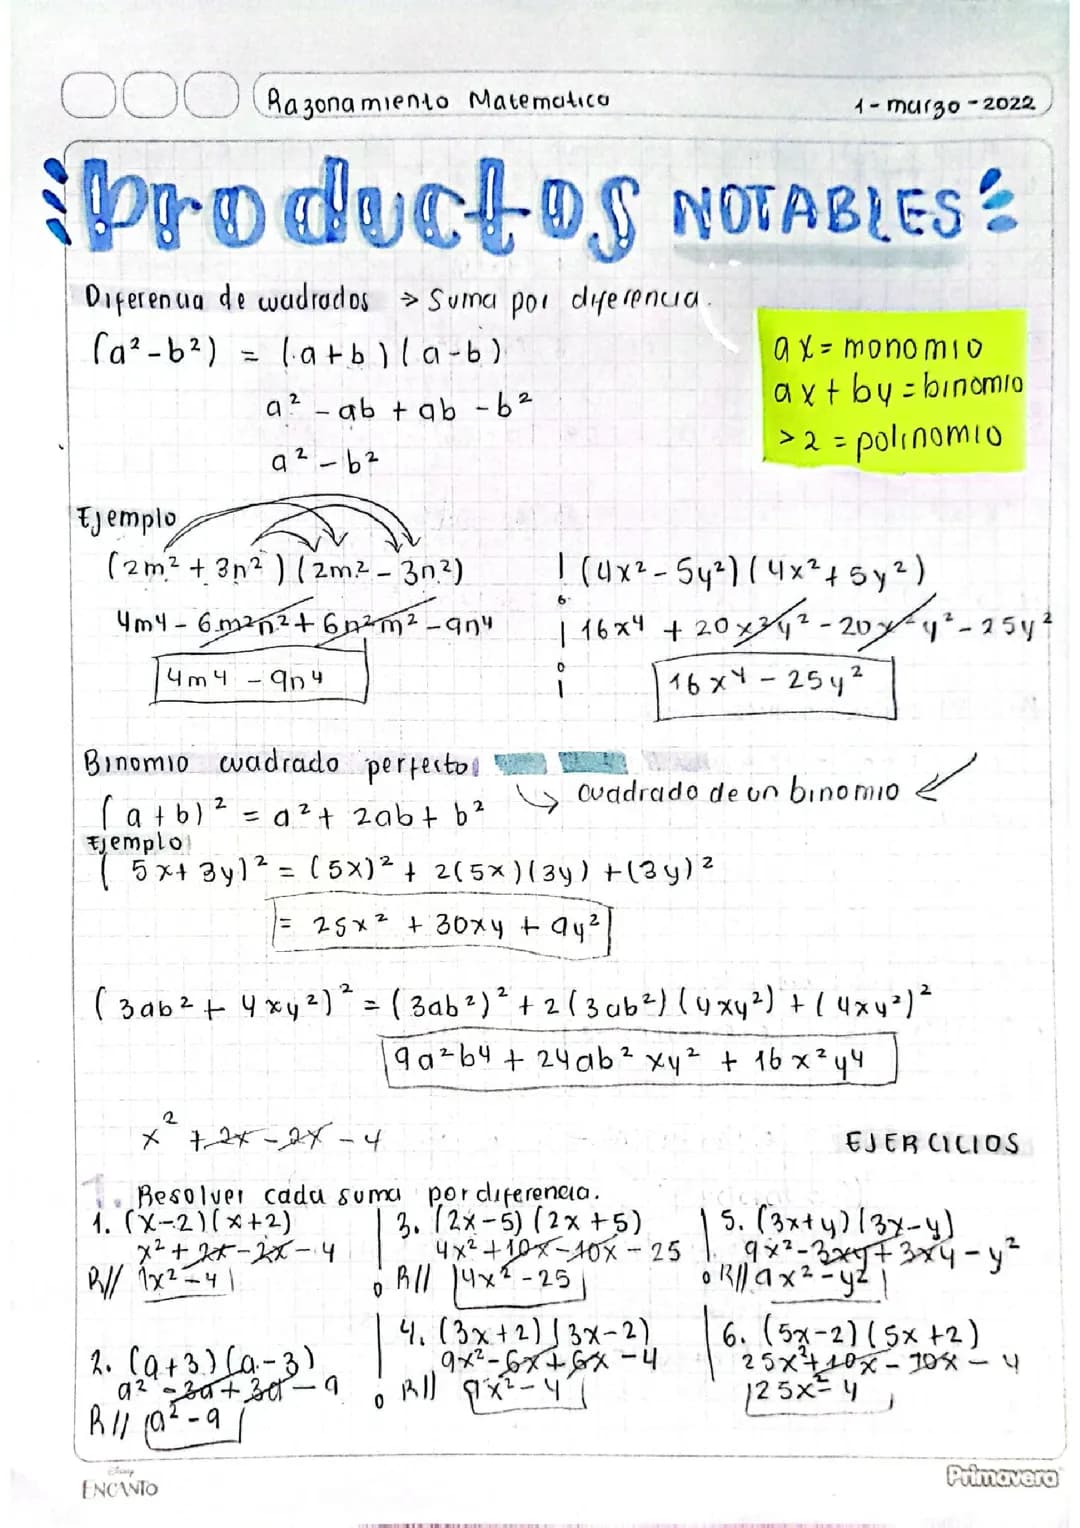 Razonamiento Matematico
1-marzo-2022
Productos NOTABLES
Diferencia de cuadrados → Suma por diferencia.
(a²-b²) = (a+b)(a-b)
a² - ab + ab - b²
a² - b²
ax = monomio
ax + by = binomio
>2 = polinomio
Ejemplo
(2m² + 3n²)(2m² - 3n²)
4m4 - 6m²n² + 6n²m² - 9n4
4m4 - 9n4
(4x² - 5y²)(4x² + 5y²)
16x4 + 20x²y² - 20x²y² - 25y²
16x4 - 25y²
Binomio cuadrado perfecto
↳ cuadrado de un binomio ↙
(a+b)² = a² + 2ab + b²
Ejemplo
(5x+3y)² = (5x)² + 2(5x)(3y) + (3y)²
= 25x² + 30xy + 9y²
(3ab² + 4xy²)² = (3ab²)² + 2(3ab²)(4xy²) + (4xy²)²
9a²b4 + 24ab² xy² + 16x²y4
x² + 2x - 2x - 4
EJERCICIOS
1. Resolver cada suma por diferencia.
1. (x-2)(x+2)
x² + 2x - 2x - 4
R// 1x² - 4
2. (a+3)(a-3)
a² - 3a + 3a - 9
R// a² - 9
3. (2x-5)(2x+5)
4x² + 10x - 10x - 25
R// 4x² - 25
4. (3x+2)(3x-2)
9x² - 6x + 6x - 4
R// 9x² - 4
5. (3x+y)(3x-y)
9x² - 3xy + 3xy - y²
R// 9x² - y²
6. (5x-2)(5x+2)
25x² + 10x - 10x - 4
25x² - 4
Disney
ENCANTO
Primavera